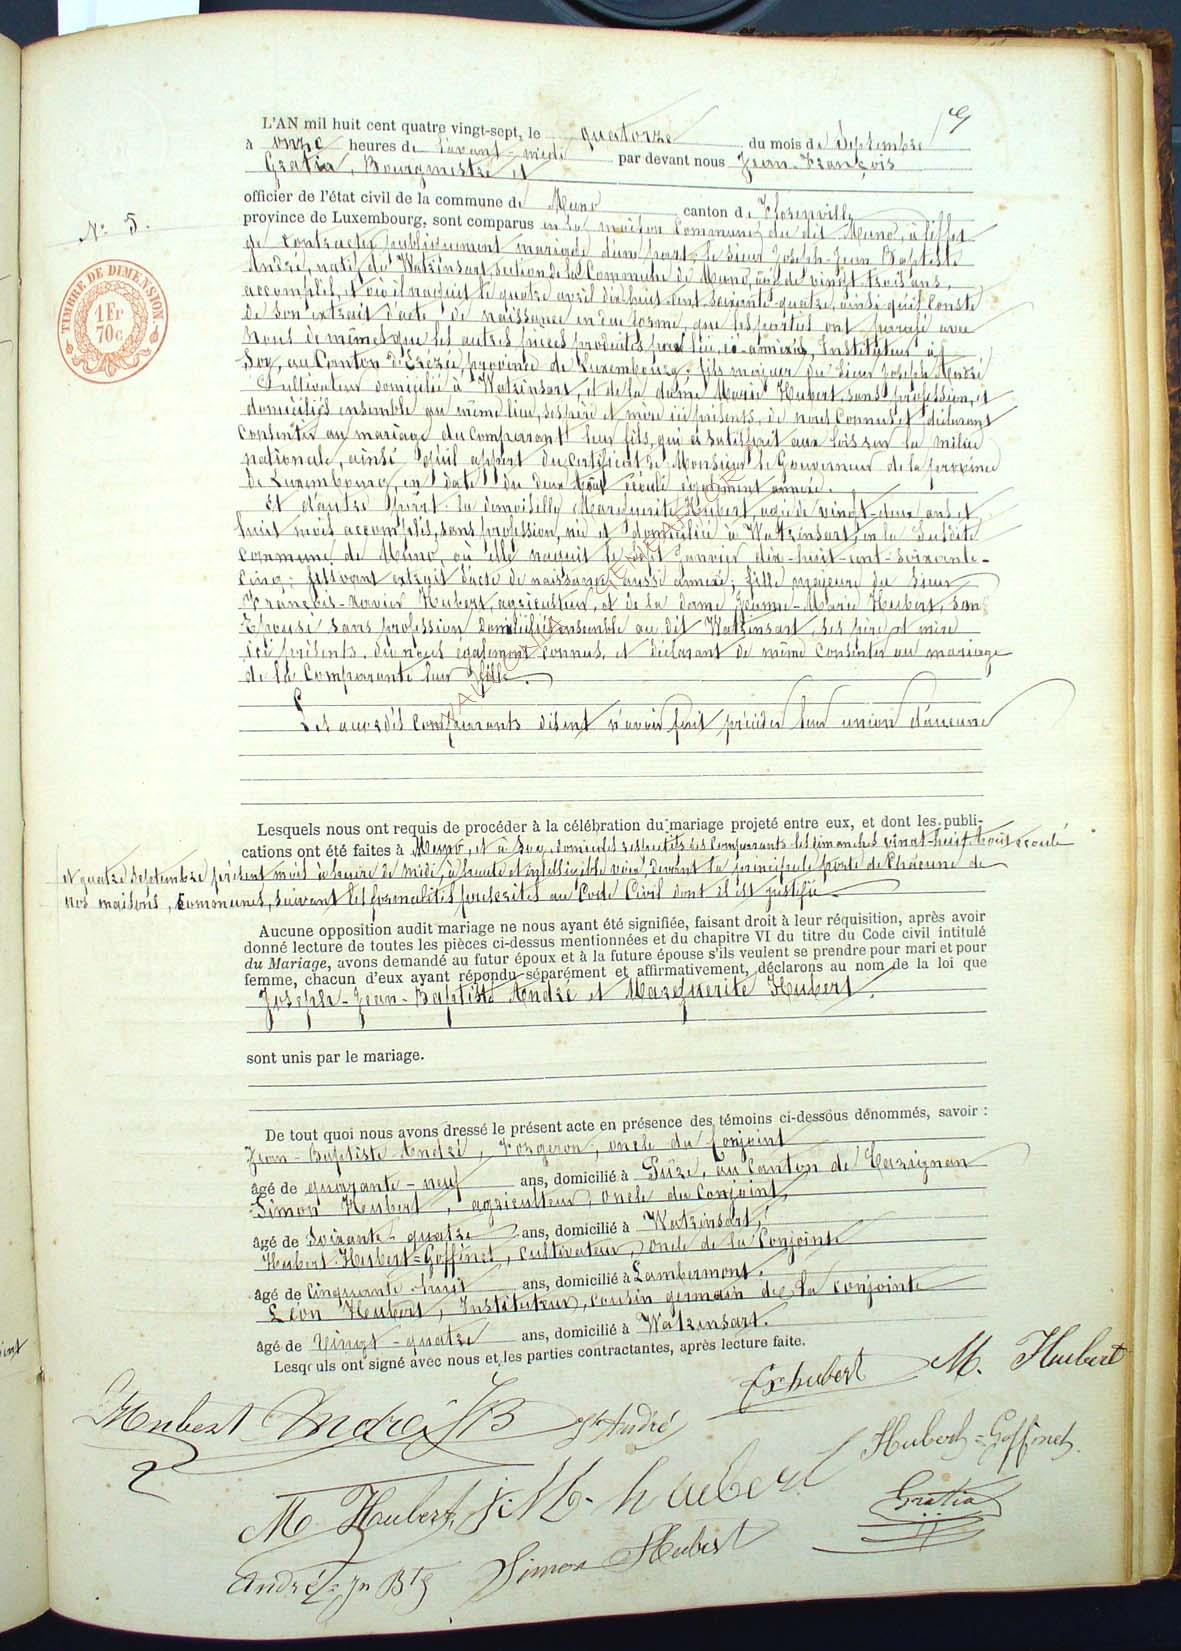 19
L'AN mil huit cent quatre vingt-sept, le quatorze du mois de Septembre
à onze heures de l'avant-midi par devant nous Jean-François
Gratia, Bourgmestre et
officier de l'état civil de la commune de Muno canton de Florenville
N° 5.
province de Luxembourg, sont comparus en la maison Commune du dit Muno, à l'effet
de contracter publiquement mariage d'une part, le sieur Joseph-Jean-Baptiste
André, natif de Watrinsart, section de la Commune de Muno, âgé de vingt-trois ans
accomplis, et où il naquit le quatre avril dix huit cent soixante-quatre, ainsi qu'il Conste
TIMBRE DE DIMENSION
1 Fr
70 c
de son extrait d'acte de naissance en due forme, que les parties ont parafé avec
Nous de même que les autres pièces produites pour lieu, ci-annexés, Instituteur à
Soy, au Canton d'Erézée, province de Luxembourg; fils majeur du sieur Joseph André
Cultivateur domicilié à Watrinsart, et de la dame Marie Hubert, sans profession, et
domiciliés ensemble au même lieu, ses père et mère ici présents, de nous Connus et déclarant
Consentir au mariage du Comparant leur fils, qui a satisfait aux lois sur la milice
nationale, ainsi qu'il appert du certificat de Monsieur le Gouverneur de la province
de Luxembourg, en date du deux Août écoulé également annexé.
Et d'autre part la demoiselle Marguerite Hubert, agée de vingt-deux ans et
huit mois accomplis, sans profession, née et domiciliée à Watrinsart, en la Susdite
Commune de Muno où elle naquit le sept Janvier dix-huit-cent-soixante-
Cinq; suivant extrait d'acte de naissance aussi annexé; fille majeure du sieur
François-Xavier Hubert, agriculteur, et de la dame Jeanne-Marie Hubert, son
Epouse sans profession domiciliés ensemble au dit Watrinsart, ses père et mère
ici présents, de nous également Connus, et déclarant de même Consentir au mariage
de la Comparante leur fille.
Les accordés Comparants disent n'avoir fait précéder leur union d'aucune
Lesquels nous ont requis de procéder à la célébration du mariage projeté entre eux, et dont les publi-
cations ont été faites à Muno, et à Soy, domiciles respectifs des Comparants les dimanches vingt-huit Août écoulé
et quatre Septembre présent mois à heure de midi, à haute et intelligible voix, devant la principale porte de Chacune de
nos maisons, Communes, suivant les formalités prescrites au Code Civil dont il s'est justifié.
Aucune opposition audit mariage ne nous ayant été signifiée, faisant droit à leur réquisition, après avoir
donné lecture de toutes les pièces ci-dessus mentionnées et du chapitre VI du titre du Code civil intitulé
du Mariage, avons demandé au futur époux et à la future épouse s'ils veulent se prendre pour mari et pour
femme, chacun d'eux ayant répondu séparément et affirmativement, déclarons au nom de la loi que
Joseph-Jean-Baptiste André et Marguerite Hubert.
sont unis par le mariage.
De tout quoi nous avons dressé le présent acte en présence des témoins ci-dessous dénommés, savoir :
Jean-Baptiste André, Forgeron, oncle du Conjoint
âgé de quarante-neuf ans, domicilié à Pure, au Canton de Carignan
Simon Hubert, agriculteur, Oncle du Conjoint,
âgé de Soixante-quatre ans, domicilié à Watrinsart,
Hubert Hubert=Goffinet, cultivateur, Oncle de la Conjointe
âgé de Cinquante-huit ans, domicilié à Lambermont.
Léon Hubert, Instituteur, cousin germain de la Conjointe
âgé de Vingt-quatre ans, domicilié à Watrinsart.
Lesquels ont signé avec nous et les parties contractantes, après lecture faite.
Fx hubert M. Hubert
Hubert André JJB Jh André
Hubert=Goffinet
M Hubert J. M. hubert
Gratia
André Jn Bte Simon Hubert